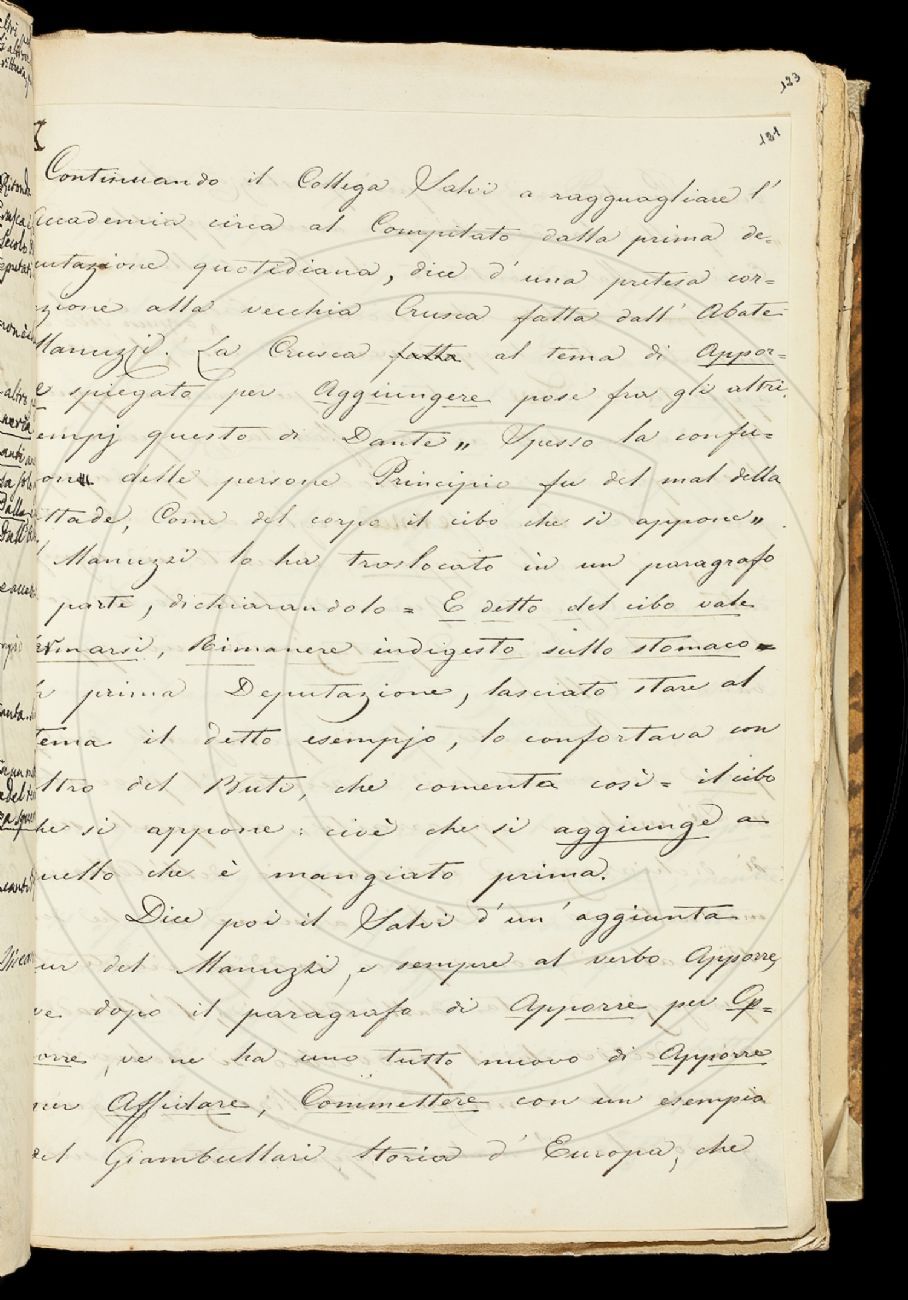 123
121
Continuando il Collega Salvi a ragguagliare l'
Accademia circa al Compilato dalla prima de=
putazione quotidiana, dice d'una pretesa cor=
zione alla vecchia Crusca fatta dall'Abate
Manuzzi. La Crusca fatta al tema di Appor=
e spiegato per Aggiungere pose fra gli altri
empj questo di Dante „ Spesso la confu=
one delle persone Principio fu del mal della
ttade, Come del corpo il cibo che si appone „
l Manuzzi lo ha traslocato in un paragrafo
parte, dichiarandolo = E detto del cibo vale
ermarsi, Rimanere indigesto sullo stomaco =
a prima Deputazione, lasciato stare al
tema il detto esempjo, lo confortava con
ltro del Buti, che comenta così = il cibo
che si appone: cioè che si aggiunge a
quello che è mangiato prima.
Dice poi il Salvi d'un'aggiunta
ur del Manuzzi, e sempre al verbo Apporre,
ve dopo il paragrafo di Apporre per Op=
orre, ve ne ha uno tutto nuovo di Apporre
per Affidare, Commettere con un esempio
del Giambullari Storia d'Europa, che